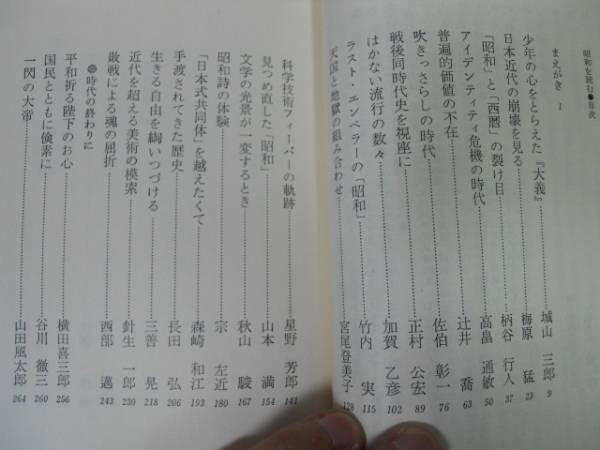 昭和を読む●目次
まえがき 1
少年の心をとらえた『大義』 城山 三郎 9
日本近代の崩壊を見る 梅原 猛 23
「昭和」と「西暦」の裂け目 柄谷 行人 37
アイデンティティ危機の時代 高畠 通敏 50
普遍的価値の不在 辻井 喬 63
吹きっさらしの時代 佐伯 彰一 76
戦後同時代史を視座に 正村 公宏 89
はかない流行の数々 加賀 乙彦 102
ラスト・エンペラーの「昭和」 竹内 実 115
天国と地獄の組み合わせ 宮尾登美子 128
科学技術フィーバーの軌跡 星野 芳郎 141
見つめ直した「昭和」 山本 満 154
文学の光景が一変するとき 秋山 駿 167
昭和詩の体験 宗 左近 180
「日本式共同体」を越えたくて 森崎 和江 193
手渡されてきた歴史 長田 弘 206
生きる自由を綯いつづける 三善 晃 218
近代を超える美術の模索 針生 一郎 230
敗戦による魂の屈折 西部 邁 243
●時代の終わりに
平和祈る陛下のお心 横田喜三郎 256
国民とともに倹素に 谷川 徹三 260
一閃の大帝 山田風太郎 264